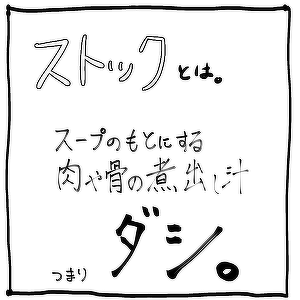 ストックとは。
スープのもとにする
肉や骨の煮出し汁
つまり ダシ。